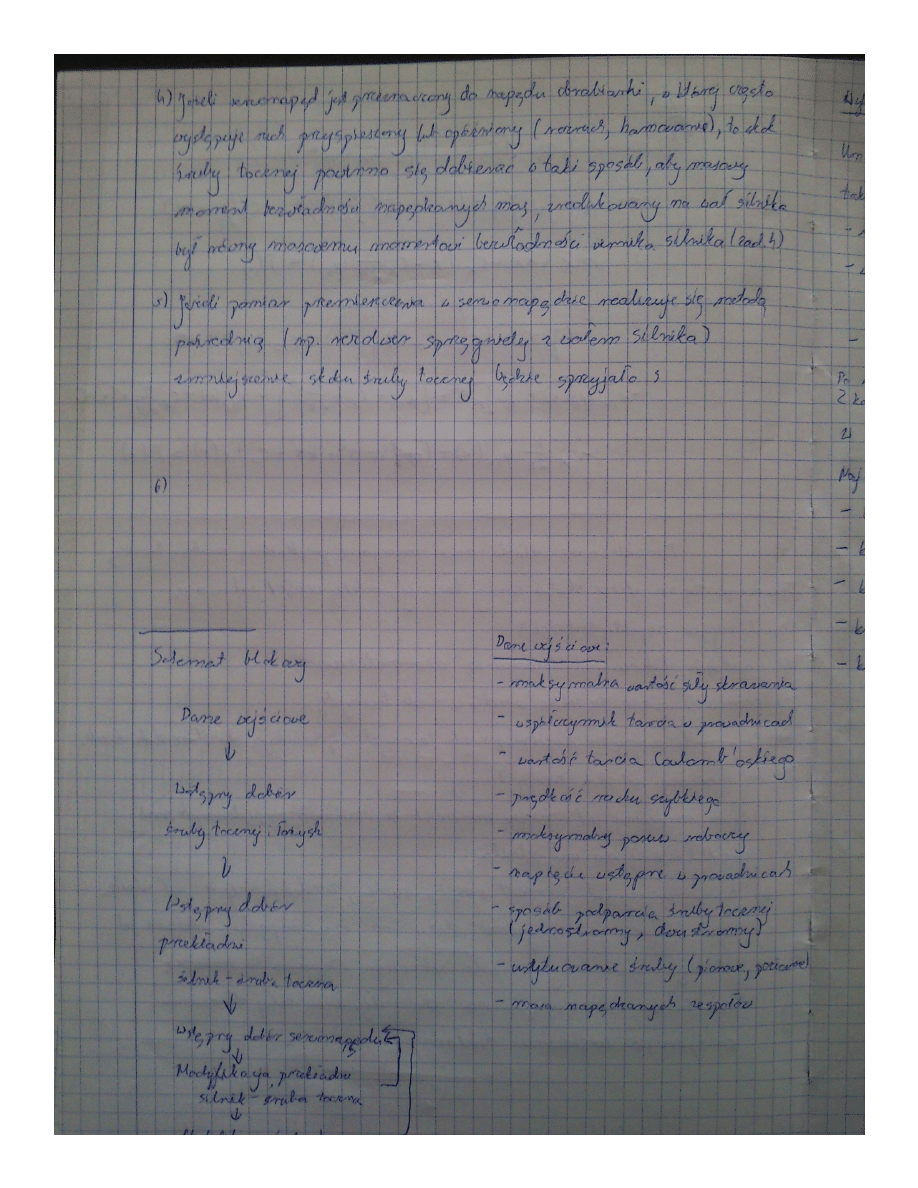 4) Jeżeli serwonapęd jest przeznaczony do napędu obrabiarki, w której często
występuje ruch przyspieszony lub opóźniony (rozruch, hamowanie), to skok
śruby tocznej powinno się dobierać w taki sposób, aby masowy
moment bezwładności napędzanych mas, zredukowany na wał silnika
był równy masowemu momentowi bezwładności wirnika silnika (zad. 4)
5) Jeżeli pomiar przemieszczenia w serwonapędzie realizuje się metodą
pośrednią (np. rezolwer sprzęgnięty z wałem silnika)
zmniejszenie skoku śruby tocznej będzie sprzyjało s
6)
Schemat blokowy
Dane wejściowe
↓
Wstępny dobór
śruby tocznej i łożysk
↓
Wstępny dobór
przekładni
silnik - śruba toczna
↓
Wstępny dobór serwonapędu
↓
Modyfikacja przekładni
silnik - śruba toczna
↓
Dane wejściowe:
- maksymalna wartość siły skrawania
- współczynnik tarcia w prowadnicach
- wartość tarcia Coulomb'oskiego
- prędkość ruchu szybkiego
- maksymalny posuw roboczy
- napięcie wstępne w prowadnicach
- sposób podparcia śruby tocznej
(jednostronny, dwustronny)
- usytuowanie śruby (pionowe, poziome)
- masa napędzanych zespołów
Um
2 ko
Naj